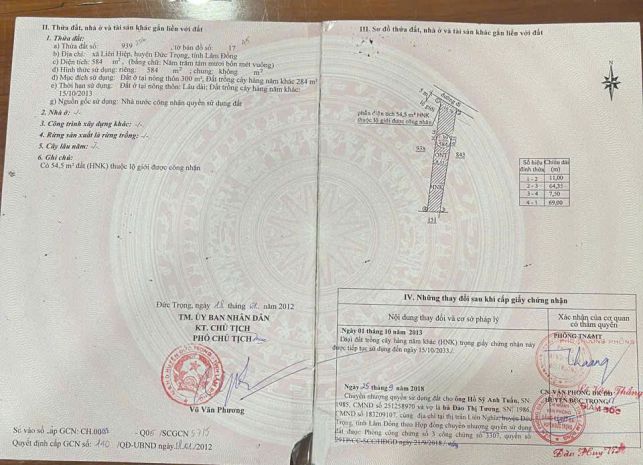 II. Thửa đất, nhà ở và tài sản khác gắn liền với đất
1. Thửa đất:
a) Thửa đất số: 939 , tờ bản đồ số: 17
b) Địa chỉ: xã Liên Hiệp, huyện Đức Trọng, tỉnh Lâm Đồng
c) Diện tích: 584 m², (bằng chữ: Năm trăm tám mươi bốn mét vuông)
d) Hình thức sử dụng: riêng: 584 m²; chung: không m²
đ) Mục đích sử dụng: Đất ở tại nông thôn 300 m², Đất trồng cây hàng năm khác 284 m²
e) Thời hạn sử dụng: Đất ở tại nông thôn: Lâu dài; Đất trồng cây hàng năm khác:
15/10/2013
g) Nguồn gốc sử dụng: Nhà nước công nhận quyền sử dụng đất
2. Nhà ở: -/-
3. Công trình xây dựng khác: -/-
4. Rừng sản xuất là rừng trồng: -/-
5. Cây lâu năm: -/-
6. Ghi chú:
Có 54,5 m² đất (HNK) thuộc lộ giới được công nhận
Đức Trọng, ngày tháng năm 2012
TM. ỦY BAN NHÂN DÂN
KT. CHỦ TỊCH
PHÓ CHỦ TỊCH
Võ Văn Phương
Số vào sổ cấp GCN: CH.
Quyết định cấp GCN số: 140 /QĐ-UBND 2012
III. Sơ đồ thửa đất, nhà ở và tài sản khác gắn liền với đất
đường đi
lộ giới
phần diện tích 54,5 m² HNK
thuộc lộ giới được công nhận
938
843
ONT
HNK
151
Số hiệu đỉnh thửa
Chiều dài (m)
1 - 2 11,00
2 - 3 64,35
3 - 4 7,50
4 - 1 69,00
IV. Những thay đổi sau khi cấp giấy chứng nhận
Nội dung thay đổi và cơ sở pháp lý
Xác nhận của cơ quan
có thẩm quyền
Ngày 01 tháng 10 năm 2013
PHÒNG TN&MT
Loại đất trồng cây hàng năm khác (HNK) trong giấy chứng nhận này
được tiếp tục sử dụng đến ngày 15/10/2033./.
Ngày 25 tháng 9 năm 2018
CN.VĂN PHÒNG ĐK ĐĐ
HUYỆN ĐỨC TRỌNG
GIÁM ĐỐC
Chuyển nhượng quyền sử dụng đất cho ông Hồ Sỹ Anh Tuấn, SN:
1985, CMND số 251258970 và vợ là bà Đào Thị Tường, SN: 1986,
CMND số 183209107, cùng địa chỉ tại thị trấn Liên Nghĩa, huyện Đức
Trọng, tỉnh Lâm Đồng theo Hợp đồng chuyển nhượng quyền sử dụng
đất được Phòng công chứng số 3 công chứng số 3307, quyển số
21/9/2018